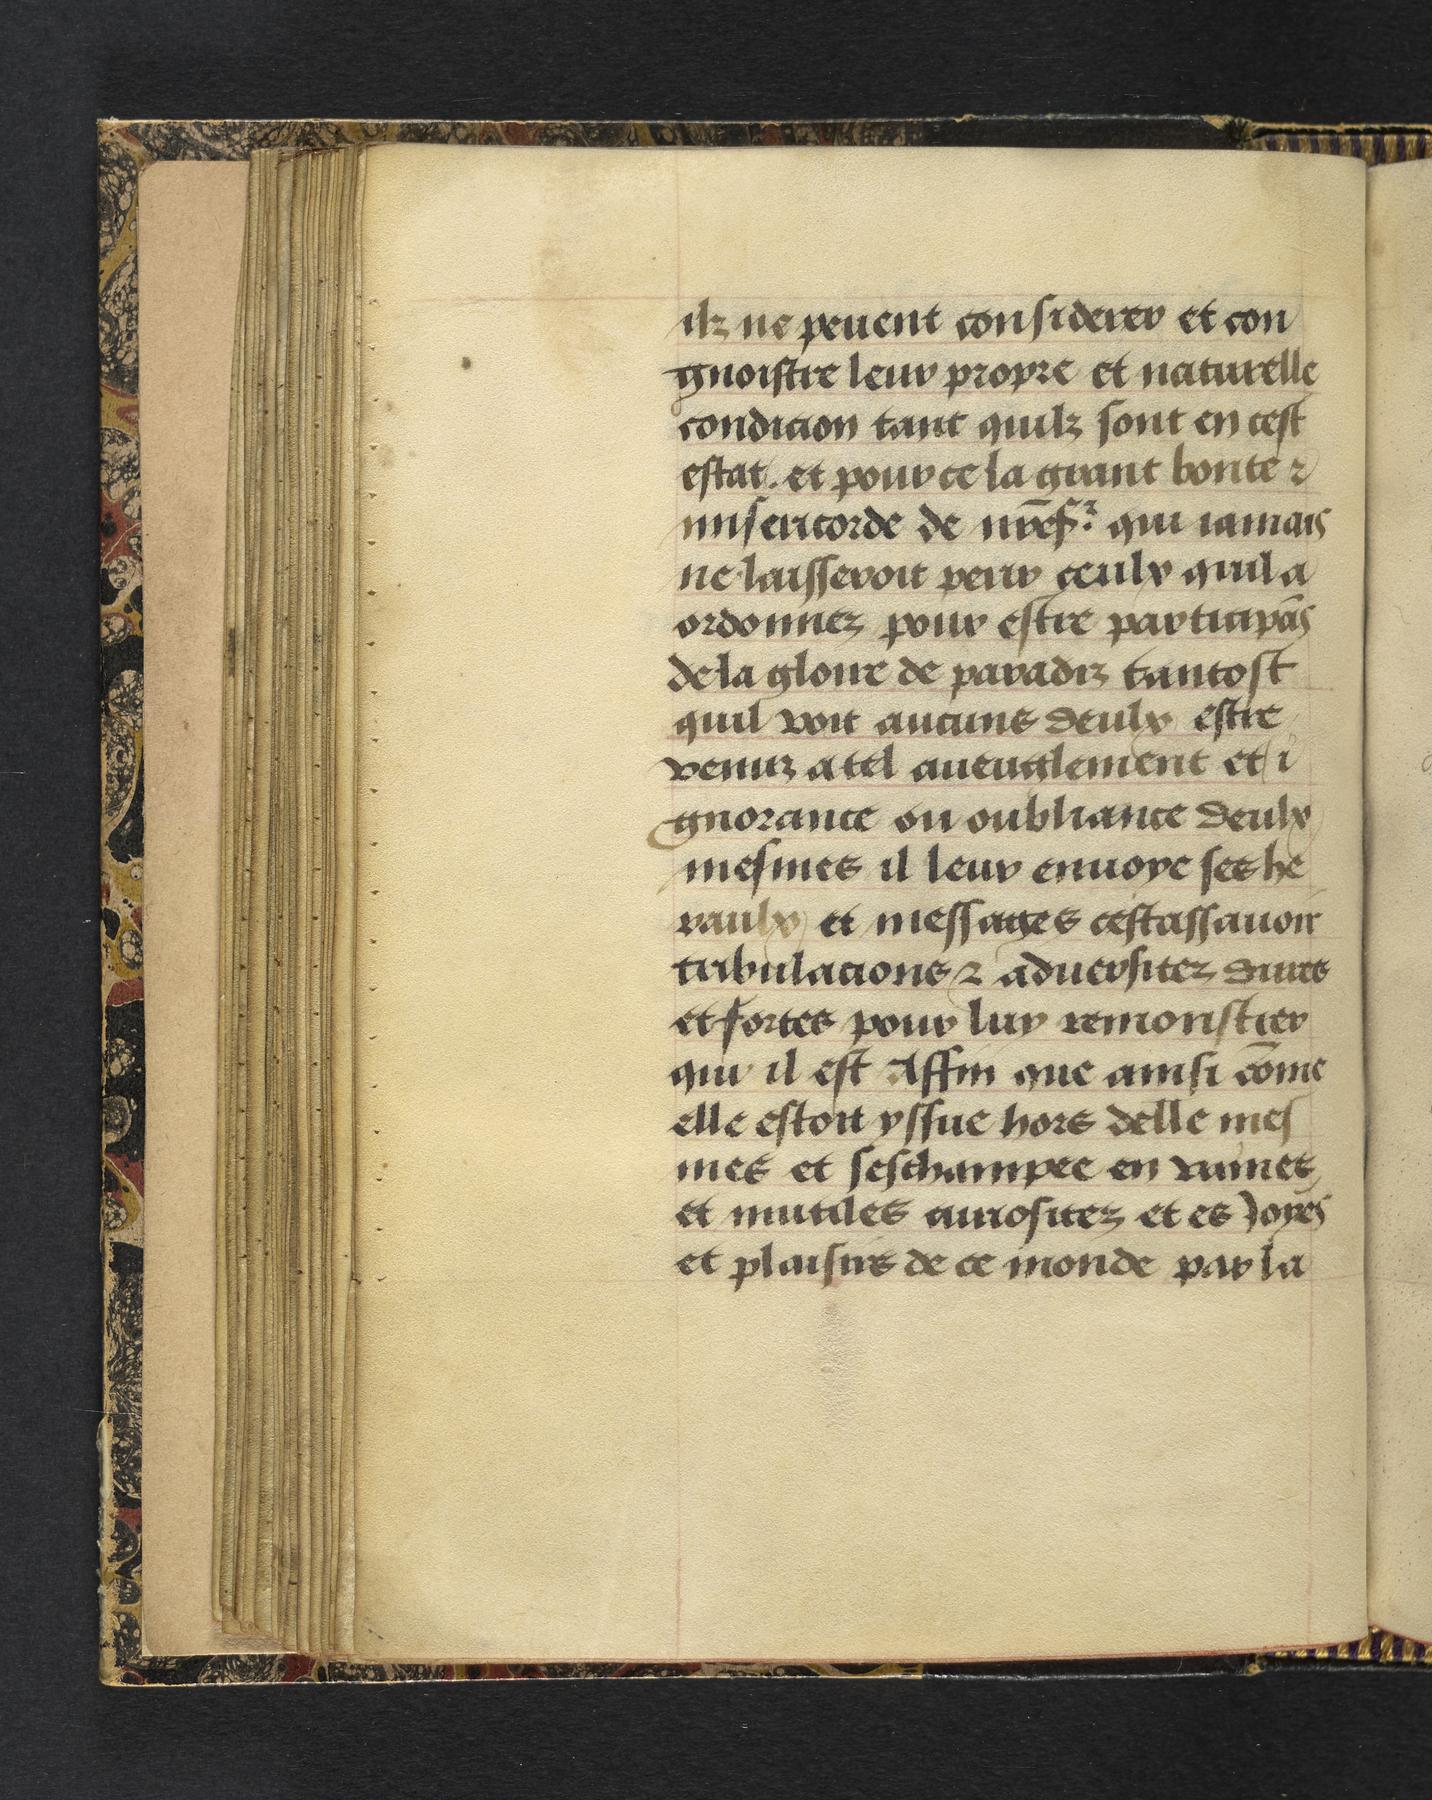 ilz ne peuent considerer et con
gnoistre leur propre et naturelle
condicion tant quilz sont en cest
estat. et pour ce la grant bonte ⁊
misericorde de nr̄e sr̄ qui iamais
ne laisseroit perir ceulx quil a
ordonnez pour estre participās
de la gloire de paradiz tantost
quil voit aucuns deulx estre
venuz a tel aueuglement et i
gnorance ou oubliance deulx
mesmes il leur enuoye ses he
raulx et messages cestassauoir
tribulacions ⁊ aduersitez dures
et fortes pour luy remonstrer
qui il est Affin que ainsi cōme
elle estoit yssue hors delle mes
mes et seschampee en vaines
et inutiles curiositez et es Joyes
et plaisirs de ce monde par la